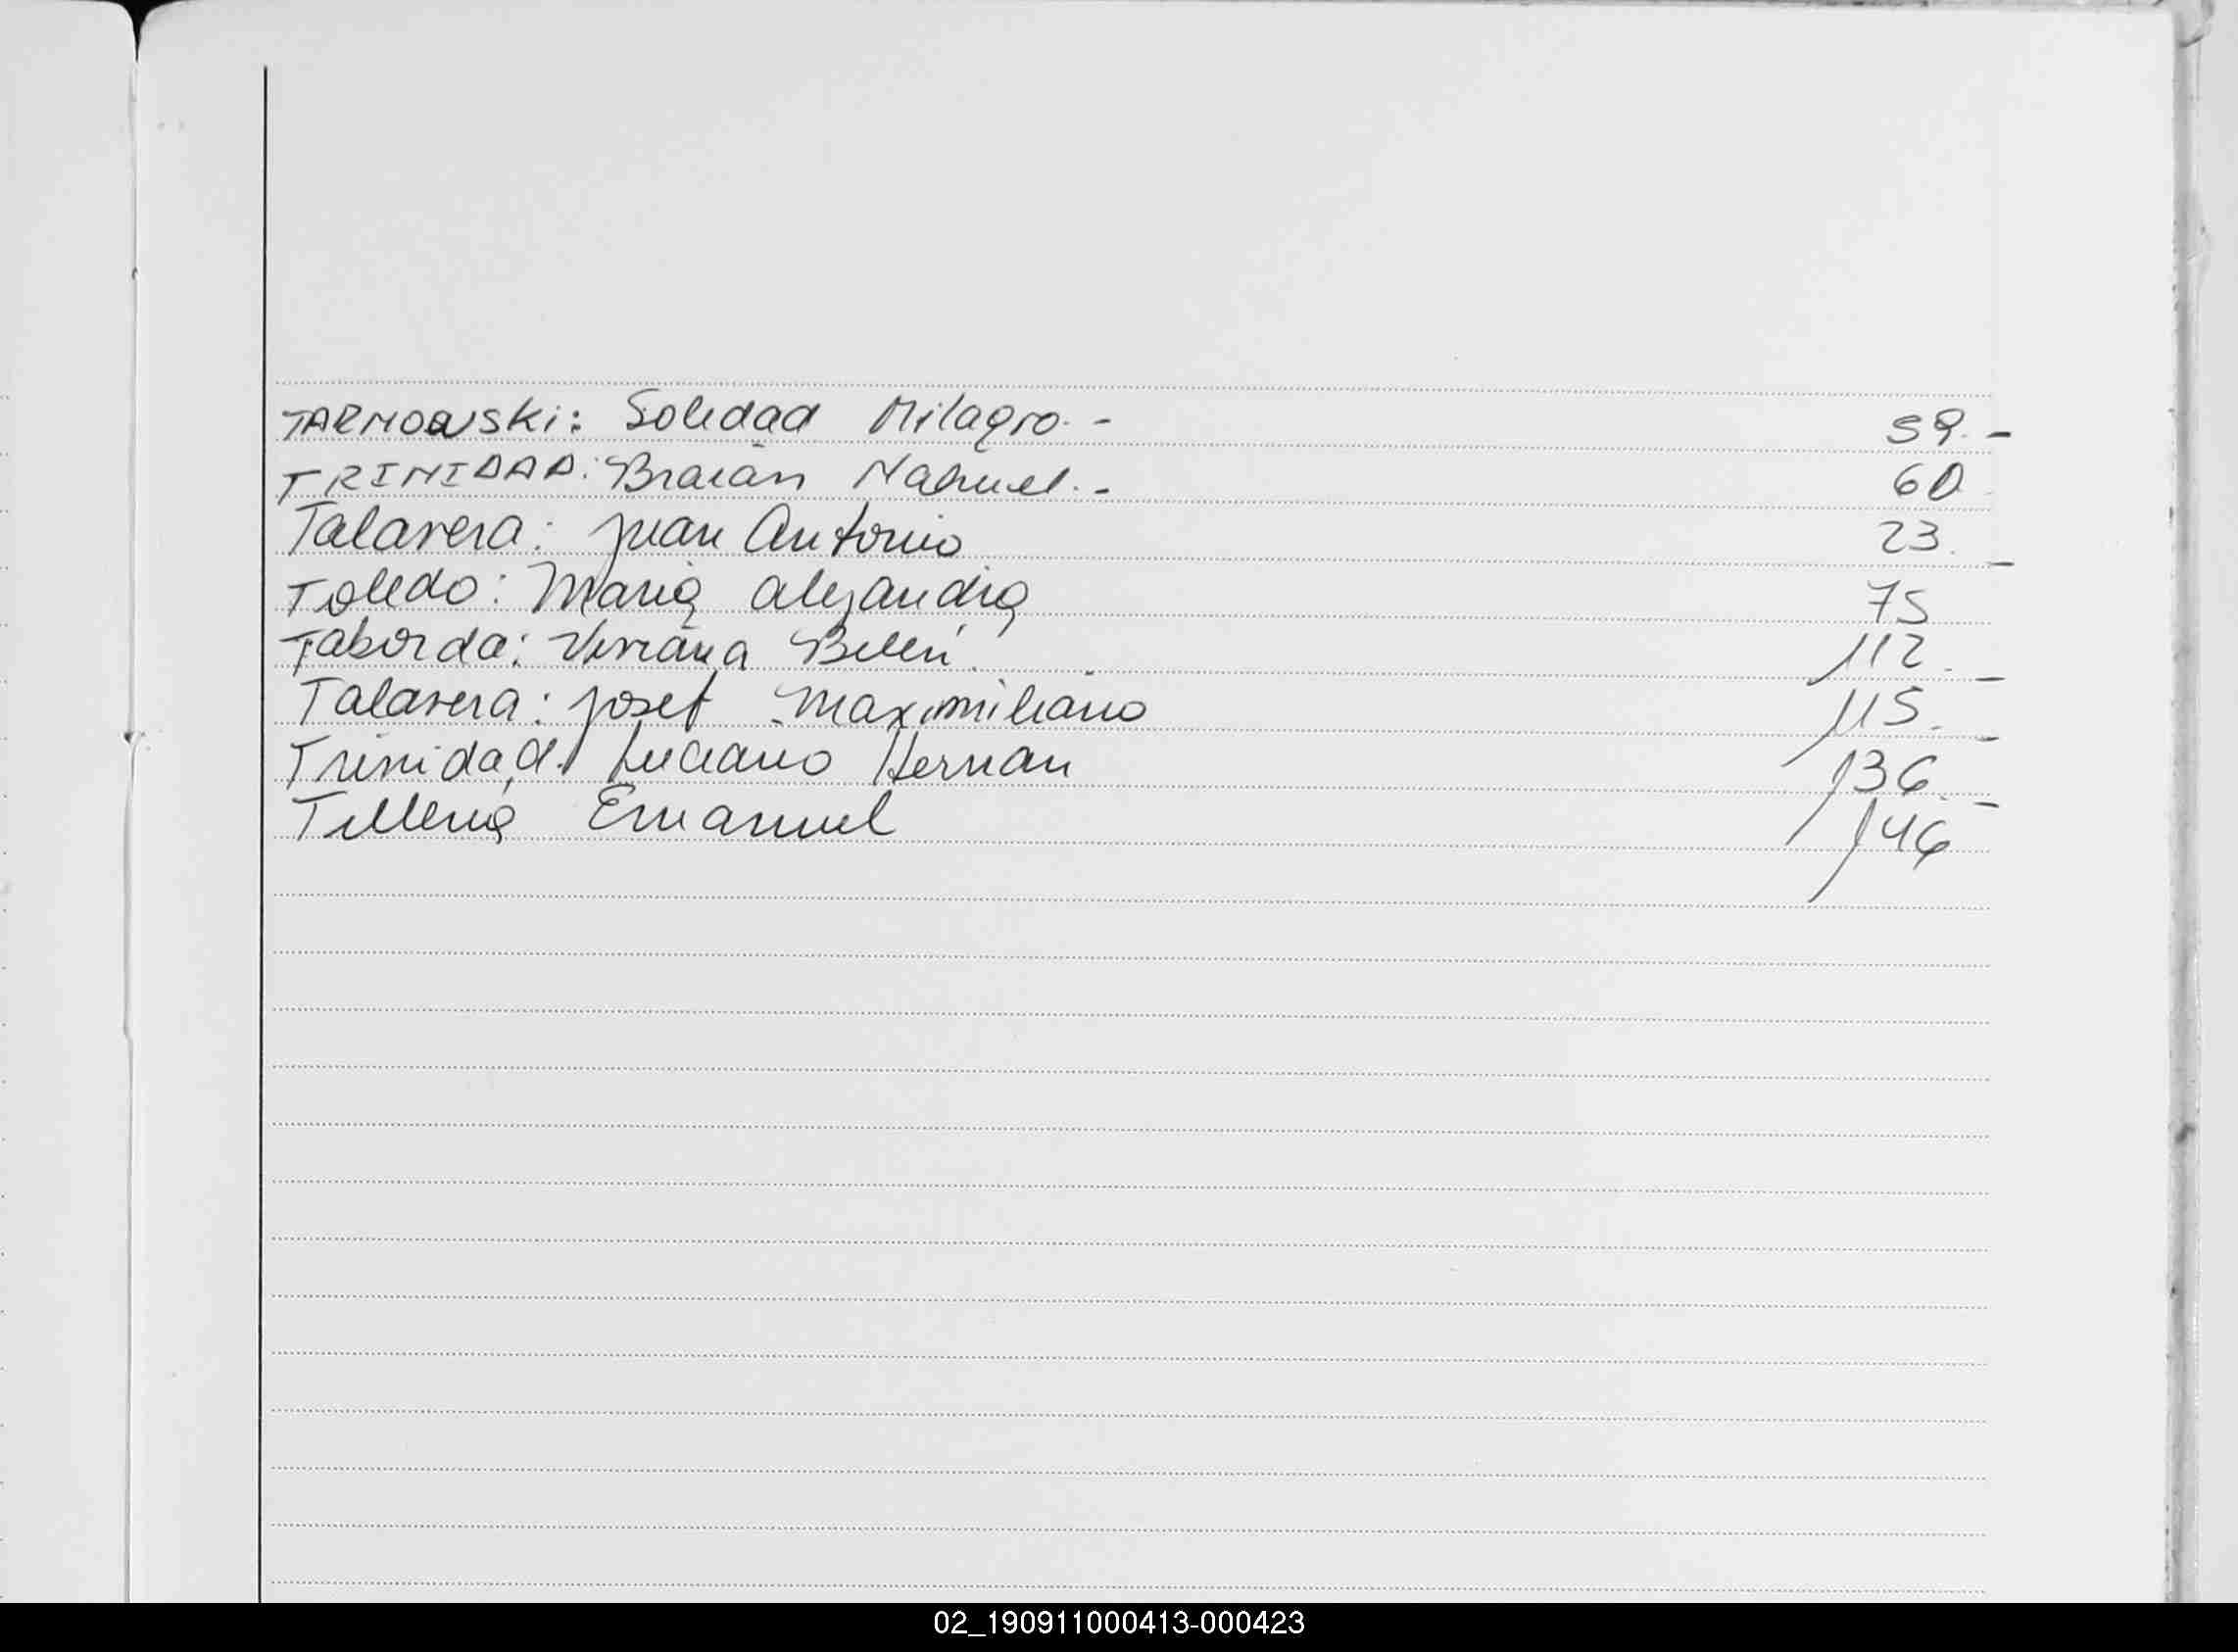 TARNOWSKi: Soledad Milagro.- 59.-
TRINIDAD: Braian Nahuel.- 60
Talavera: Juan Antonio 23.-
Toledo: Maria Alejandra 75
Taborda: Viviana Belén. 112.-
Talavera: Josef Maximiliano 115.-
Trinidad: Luciano Hernan 136.-
Telleria Emanuel 146
02_190911000413-000423